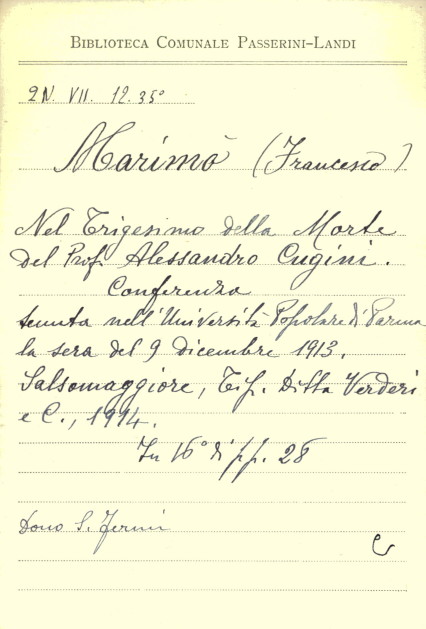 BIBLIOTECA COMUNALE PASSERINI-LANDI
2N. VII. 12. 35°
Marimò (Francesco)
Nel Trigesimo della Morte
del Prof. Alessandro Cugini.
Conferenza
tenuta nell'Università Popolare di Parma
la sera del 9 dicembre 1913.
Salsomaggiore, Tip. Ditta Verderi
e C., 1914.
In 16° di pp. 28
Dono S. Fermi